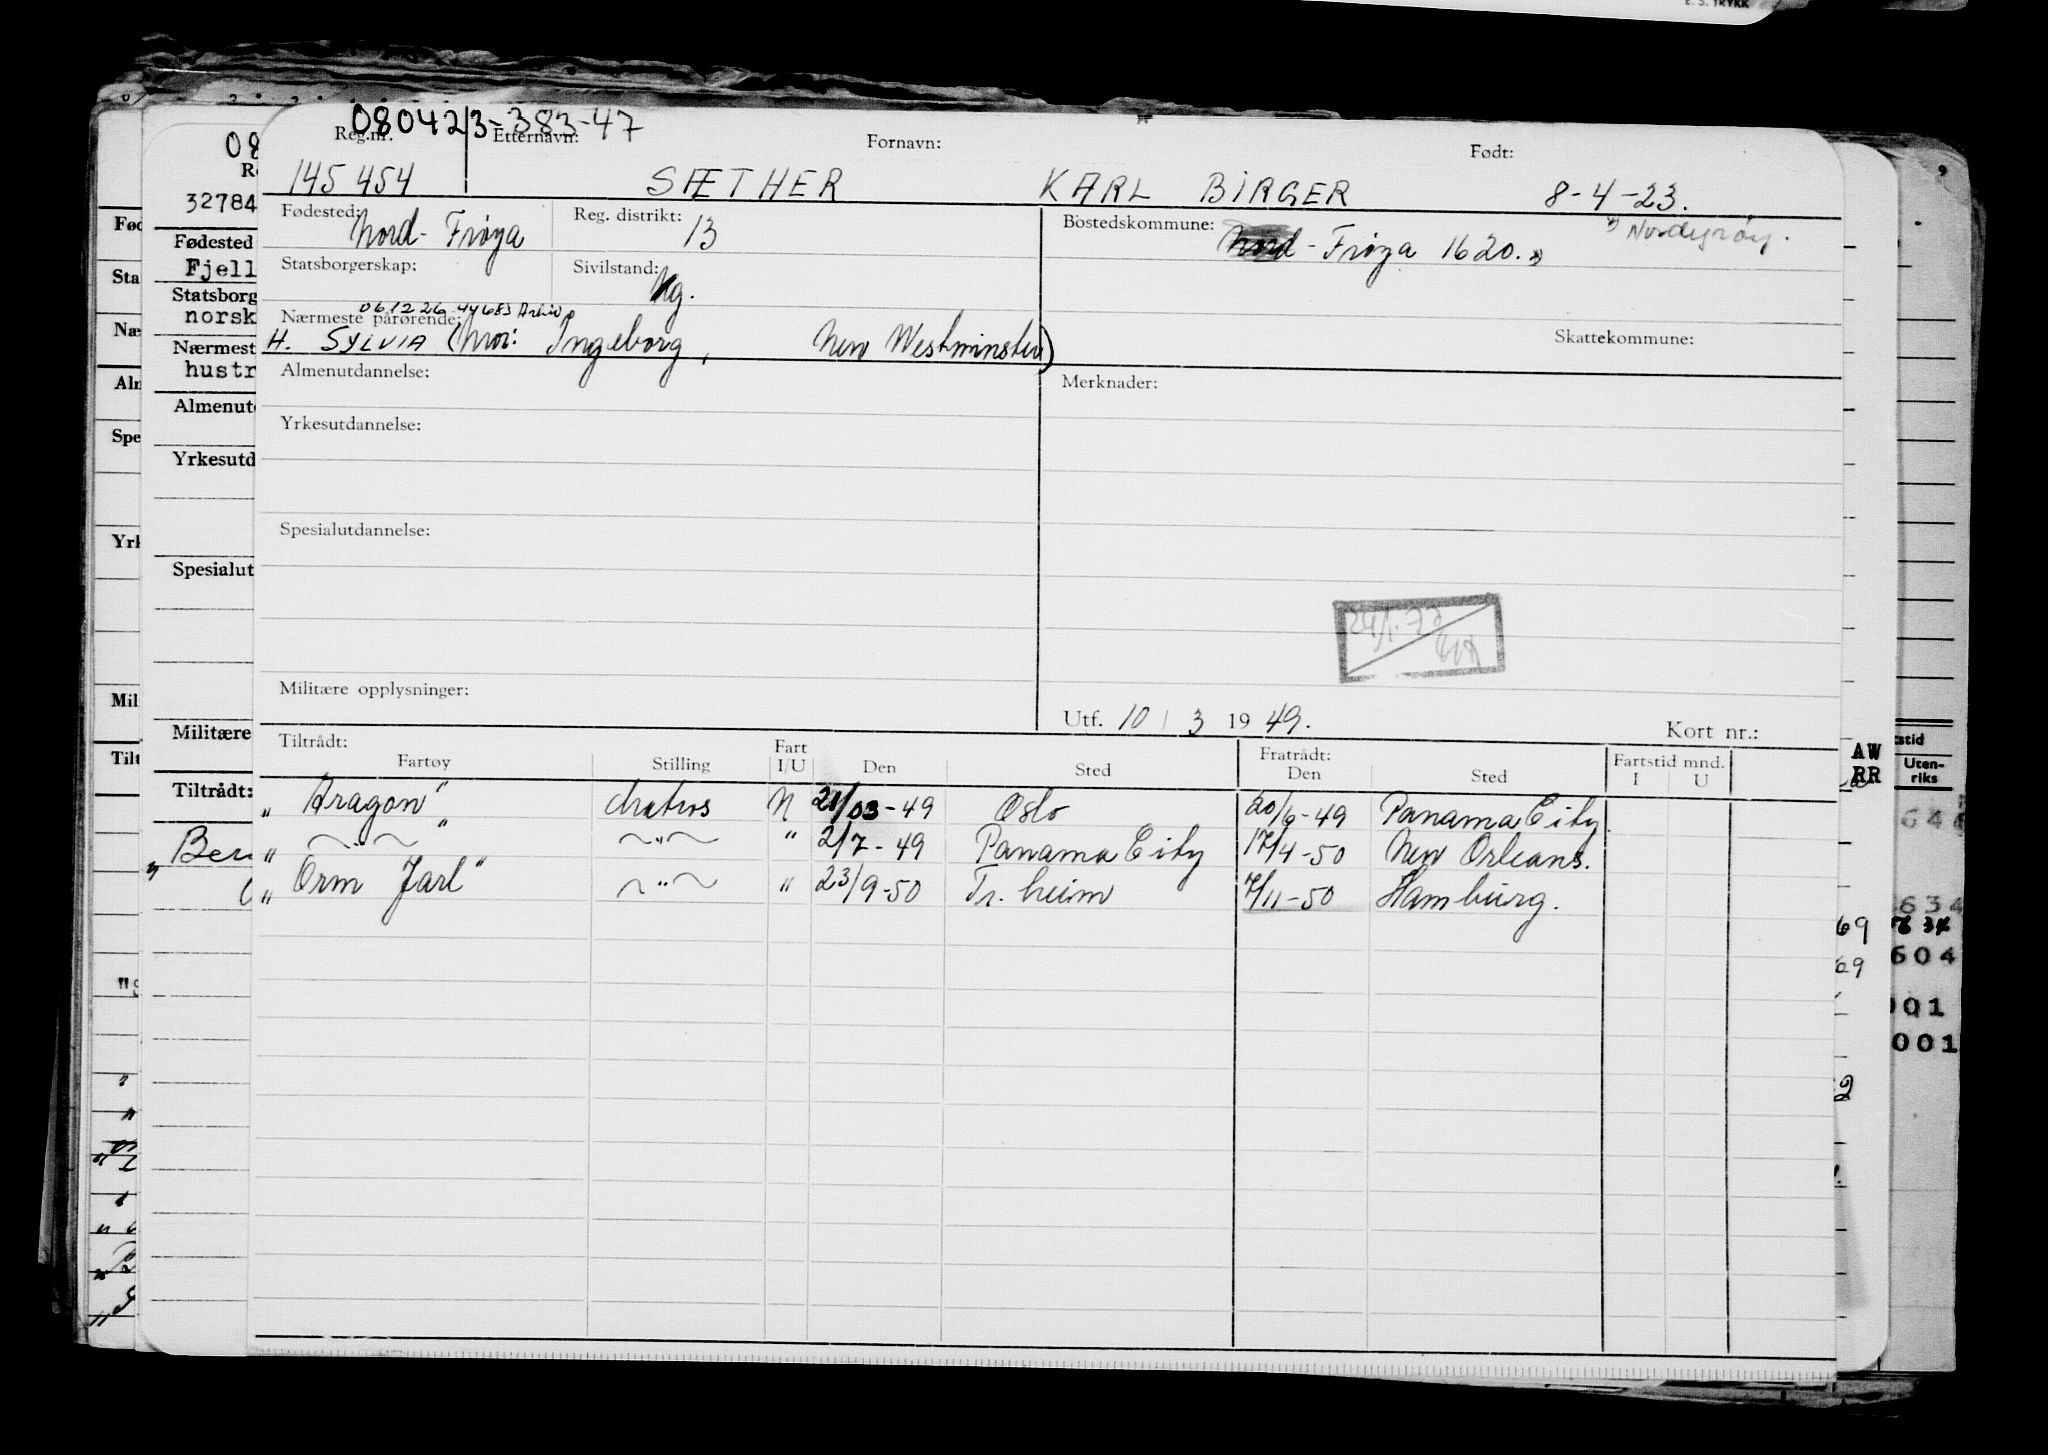 E. S. TRYKK
080423-383-47
Reg.nr. Etternavn: Fornavn: Født:
145 454 SÆTHER KARL BIRGER 8-4-23.
Fødested: Nord-Frøya Reg. distrikt: 13 Bostedskommune: Nord-Frøya 1620.
Statsborgerskap: Sivilstand: Ug.
061226 44683 Arkiv
Nærmeste pårørende:
H. SYLVIA (Mor: Ingeborg, New Westminster) Skattekommune:
Almenutdannelse: Merknader:
Yrkesutdannelse:
Spesialutdannelse:
Militære opplysninger:
Utf. 10 / 3 1949. Kort nr.:
Tiltrådt: Fartøy Stilling Fart I/U Den Sted Fratrådt: Den Sted Fartstid mnd. I U
"Aragon" Matros U 21/03-49 Oslo 20/6-49 Panama City
" — " — " — " — " 2/7-49 Panama City 17/4-50 New Orleans.
"Orm Jarl" — " — " 23/9-50 Tr.heim 7/11-50 Hamburg.
08
32784
Fødested
Fjell
Statsborg
norsk
Nærmest
hustr
Almenut
Yrkesutd
Spesialut
Militære
Tiltrådt:
Fød
Sta
Næ
Alr
Spe
Yrl
Mil
Tilt
AW
RR
stid
Uten-
riks
69
69
634
604
001
001